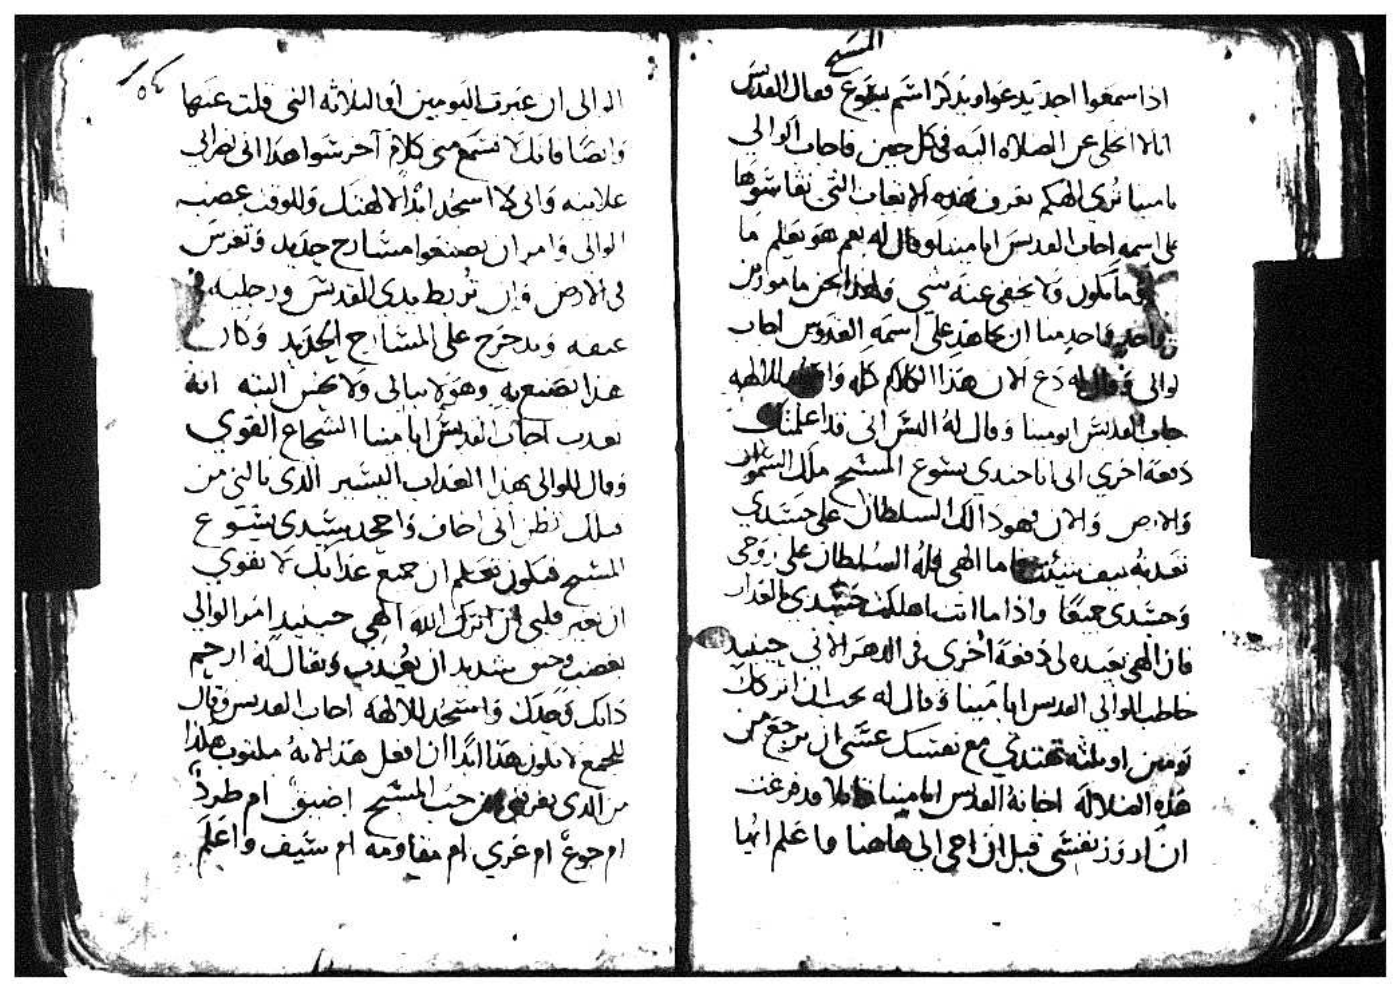 المسيح
اذا سمعوا احد يدعوا ويذكر اسم يسوع فقال القديس
انا لا اتخلى عن الصلاه اليه في كل حين فاجاب الوالى
يا مينا ترى الهكم يعرف هذه الاتعاب التي تقاسوها
على اسمه اجاب القديس ابا مينا وقال له نعم هو يعلم ما
ما يكون ولا يخفى عنه شي ولهذا نحن مامورين
واحد واحد منا ان يجاهد على اسمه القدوس اجاب
لوالى وقال له دع الان هذا الكلام كله للالهه
جاب القديس ابو مينا وقال له اليس انى قد اعلمتك
دفعه اخرى انى انا جندى يسوع المسيح ملك السموات
والارض والان فهوذا لك السلطان على جسدي
تعذبه كيف شيت فاما الهى فله السلطان على روحى
وجسدى جميعًا واذا ما انت اهلكت جسدي بالعذاب
فان الهى يعيده لى دفعة اخرى فى الدهر الاتي حينيذ
خاطب الوالي القديس ابا مينا وقال له تحب ان اتركك
يومين او ثلثه تهتدي مع نفسك عسى ان ترجع من
هذه الضلاله اجابه القديس ابا مينا قايلا قد فرغت
ان ادوز نفسى قبل ان اجى الى هاهنا واعلم ايها
الوالى ان عبرت اليومين او الثلاثه التى قلت عنها
وايضا فانك لا تسمع مني كلام آخر سوا هذا انى نصراني
علانيه وانى لا اسجد ابدًا لالهتك وللوقت غضب
الوالى وامر ان يصنعوا مسارح حديد وتغرس
في الارض وان تربط يدى القديس ورجليه في
عنقه ويدحرج على المسارح الحديد وكان
هذا يصنع به وهو لا يبالى ولا يحس البته انه
يعذب اجاب القديس ابا مينا الشجاع القوي
وقال للوالى بهذا العذاب اليسير الذى يالنى من
قبلك تظن انى اخاف واجحد سيدى يسوع
المسيح فيكون تعلم ان جميع عذابك لا تقوي
ان تغير قلبي ان اترك الله الهي حينيذ امر الوالي
بغضب وحنق شديد ان يعذب ويقال له ارحم
ذاتك وحدك واسجد للالهه اجاب القديس وقال
للجمع لا يكون هذا ابدًا ان افعل هذا لانه مكتوب هكذا
من الذى يفرقني من حب المسيح اضيق ام طرد
ام جوع ام عري ام مقاومه ام سيف واعلم